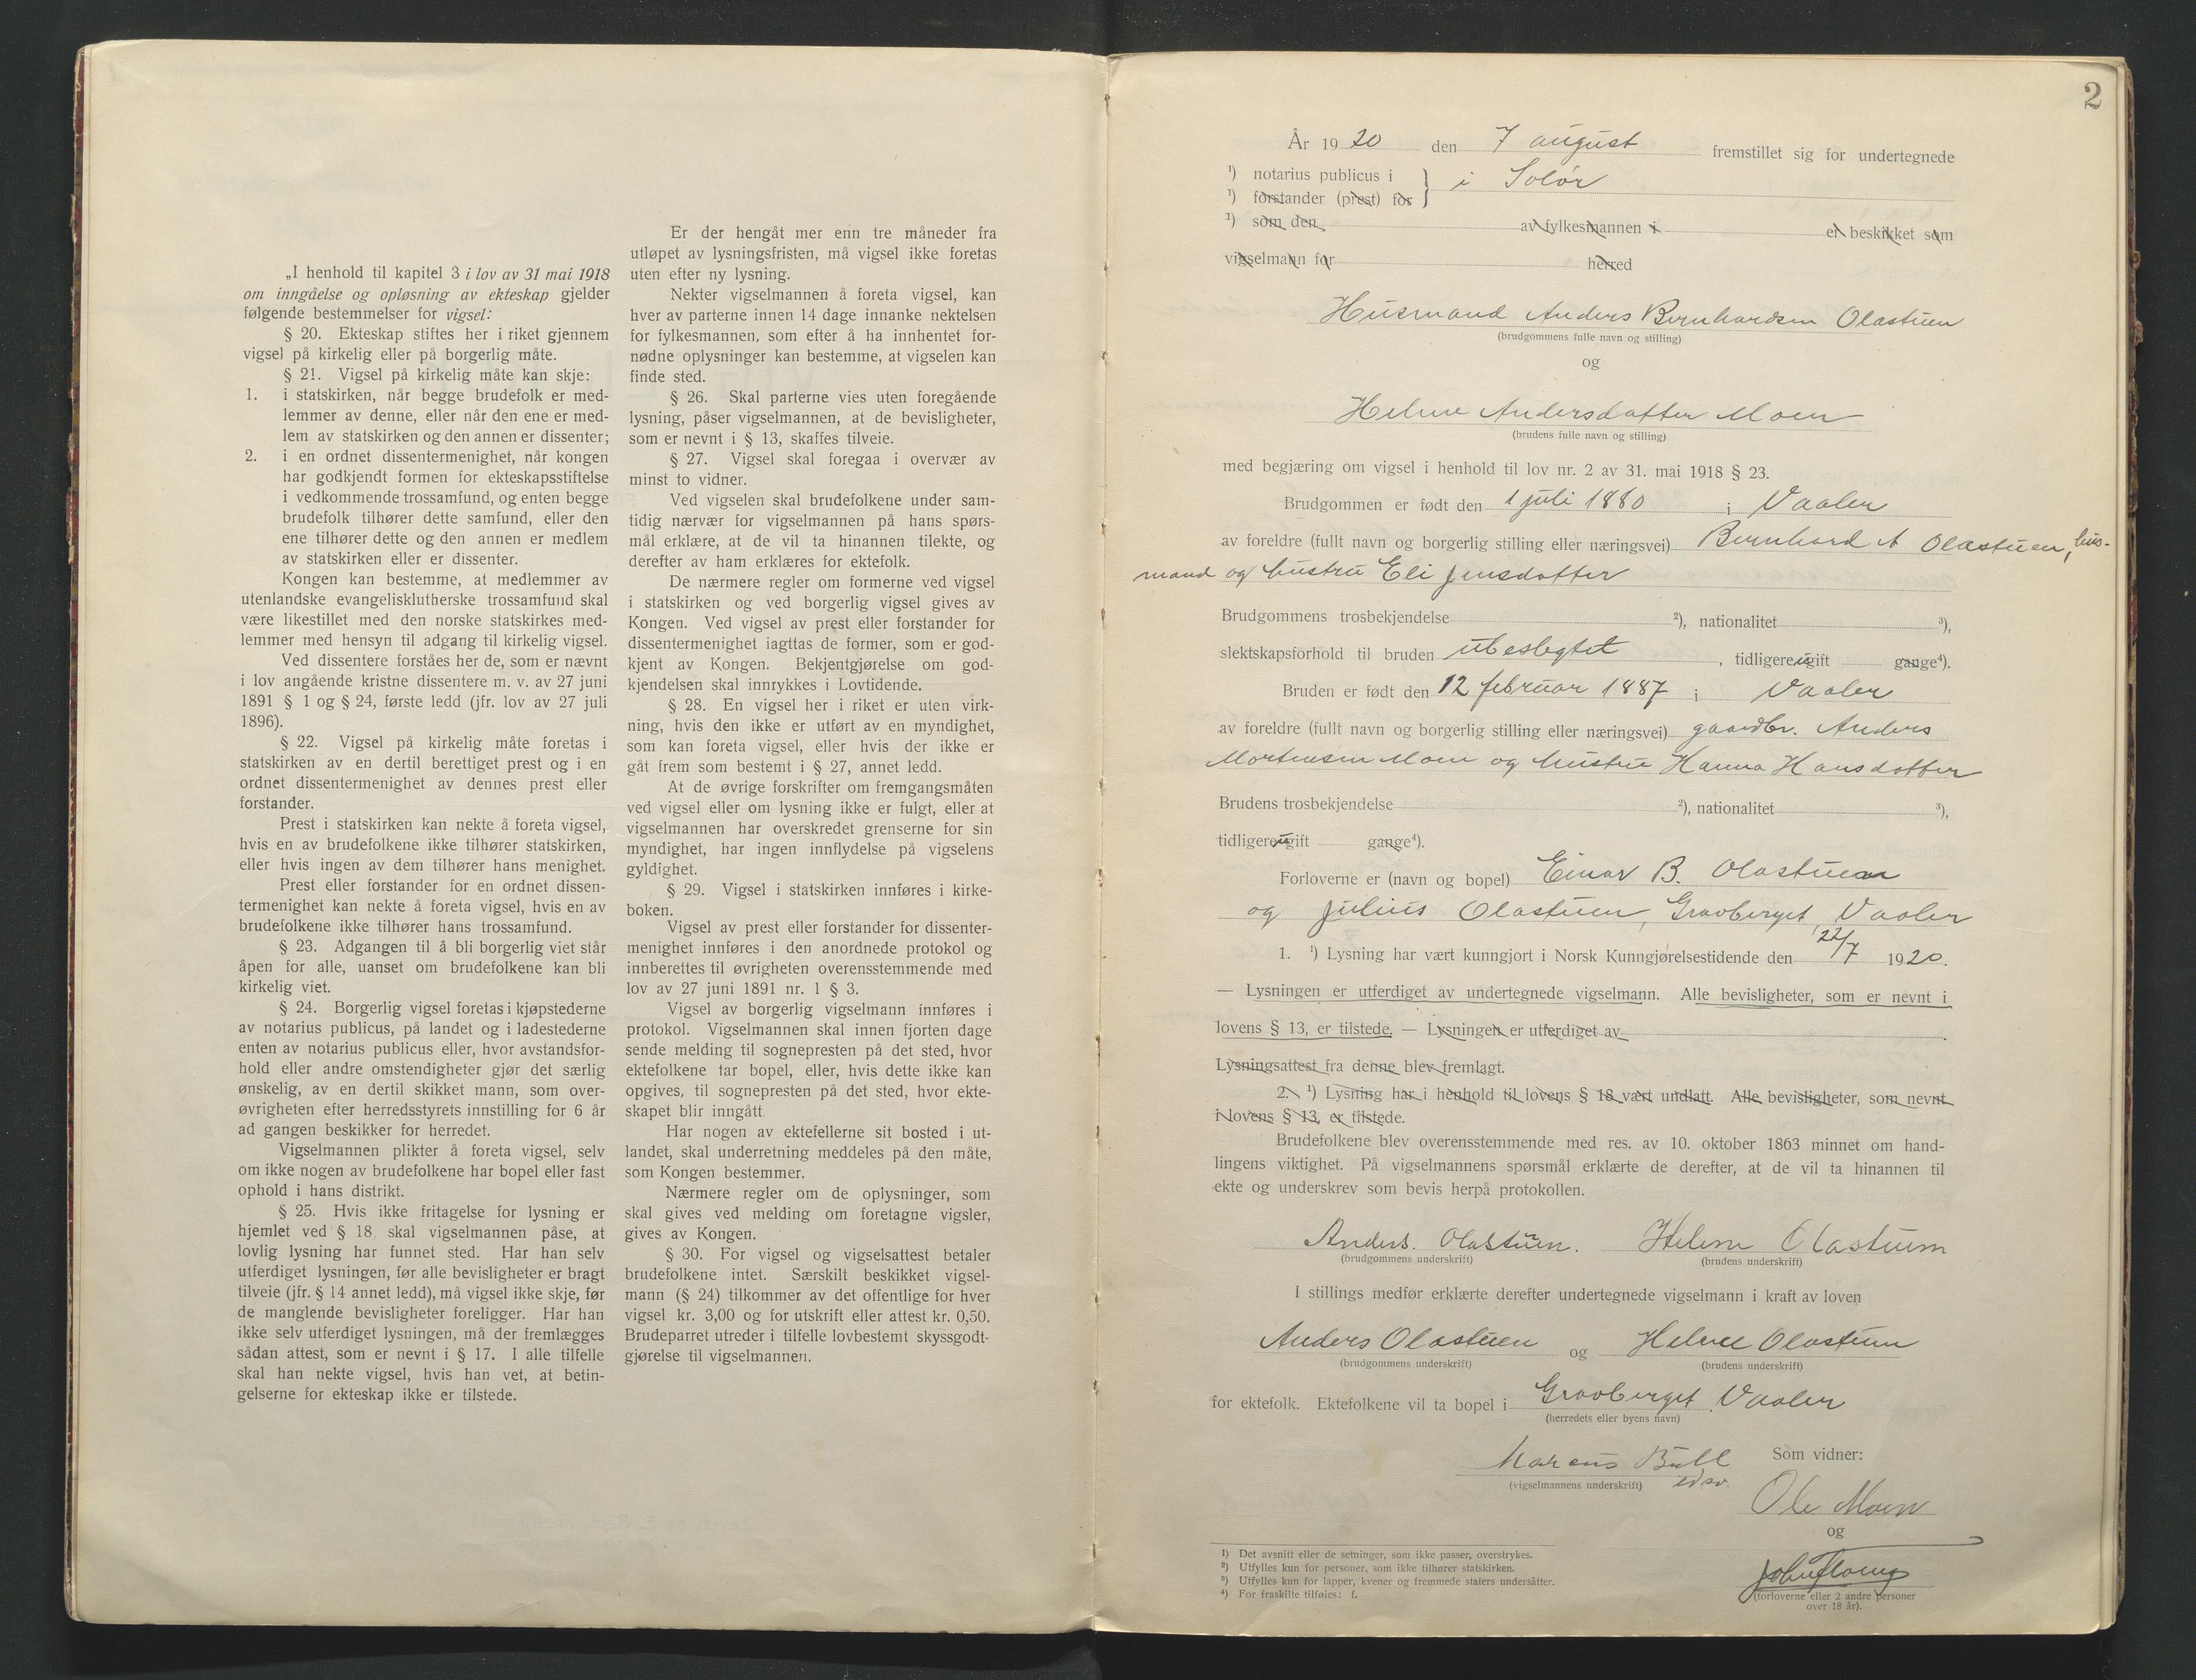 „I henhold til kapitel 3 i lov av 31 mai 1918
om inngåelse og opløsning av ekteskap gjelder
følgende bestemmelser for vigsel:
§ 20. Ekteskap stiftes her i riket gjennem
vigsel på kirkelig eller på borgerlig måte.
§ 21. Vigsel på kirkelig måte kan skje:
1. i statskirken, når begge brudefolk er med-
lemmer av denne, eller når den ene er med-
lem av statskirken og den annen er dissenter;
2. i en ordnet dissentermenighet, når kongen
har godkjendt formen for ekteskapsstiftelse
i vedkommende trossamfund, og enten begge
brudefolk tilhører dette samfund, eller den
ene tilhører dette og den annen er medlem
av statskirken eller er dissenter.
Kongen kan bestemme, at medlemmer av
utenlandske evangelisklutherske trossamfund skal
være likestillet med den norske statskirkes med-
lemmer med hensyn til adgang til kirkelig vigsel.
Ved dissentere forståes her de, som er nævnt
i lov angående kristne dissentere m. v. av 27 juni
1891 § 1 og § 24, første ledd (jfr. lov av 27 juli
1896).
§ 22. Vigsel på kirkelig måte foretas i
statskirken av en dertil berettiget prest og i en
ordnet dissentermenighet av dennes prest eller
forstander.
Prest i statskirken kan nekte å foreta vigsel,
hvis en av brudefolkene ikke tilhører statskirken,
eller hvis ingen av dem tilhører hans menighet.
Prest eller forstander for en ordnet dissen-
termenighet kan nekte å foreta vigsel, hvis en av
brudefolkene ikke tilhører hans trossamfund.
§ 23. Adgangen til å bli borgerlig viet står
åpen for alle, uanset om brudefolkene kan bli
kirkelig viet.
§ 24. Borgerlig vigsel foretas i kjøpstederne
av notarius publicus, på landet og i ladestederne
enten av notarius publicus eller, hvor avstandsfor-
hold eller andre omstendigheter gjør det særlig
ønskelig, av en dertil skikket mann, som over-
øvrigheten efter herredsstyrets innstilling for 6 år
ad gangen beskikker for herredet.
Vigselmannen plikter å foreta vigsel, selv
om ikke nogen av brudefolkene har bopel eller fast
ophold i hans distrikt.
§ 25. Hvis ikke fritagelse for lysning er
hjemlet ved § 18, skal vigselmannen påse, at
lovlig lysning har funnet sted. Har han selv
utferdiget lysningen, før alle bevisligheter er bragt
tilveie (jfr. § 14 annet ledd), må vigsel ikke skje, før
de manglende bevisligheter foreligger. Har han
ikke selv utferdiget lysningen, må der fremlægges
sådan attest, som er nevnt i § 17. I alle tilfelle
skal han nekte vigsel, hvis han vet, at betin-
gelserne for ekteskap ikke er tilstede.
Er der hengåt mer enn tre måneder fra
utløpet av lysningsfristen, må vigsel ikke foretas
uten efter ny lysning.
Nekter vigselmannen å foreta vigsel, kan
hver av parterne innen 14 dage innanke nektelsen
for fylkesmannen, som efter å ha innhentet for-
nødne oplysninger kan bestemme, at vigselen kan
finde sted.
§ 26. Skal parterne vies uten foregående
lysning, påser vigselmannen, at de bevisligheter,
som er nevnt i § 13, skaffes tilveie.
§ 27. Vigsel skal foregaa i overvær av
minst to vidner.
Ved vigselen skal brudefolkene under sam-
tidig nærvær for vigselmannen på hans spørs-
mål erklære, at de vil ta hinannen tilekte, og
derefter av ham erklæres for ektefolk.
De nærmere regler om formerne ved vigsel
i statskirken og ved borgerlig vigsel gives av
Kongen. Ved vigsel av prest eller forstander for
dissentermenighet iagttas de former, som er god-
kjent av Kongen. Bekjentgjørelse om god-
kjendelsen skal innrykkes i Lovtidende.
§ 28. En vigsel her i riket er uten virk-
ning, hvis den ikke er utført av en myndighet,
som kan foreta vigsel, eller hvis der ikke er
gåt frem som bestemt i § 27, annet ledd.
At de øvrige forskrifter om fremgangsmåten
ved vigsel eller om lysning ikke er fulgt, eller at
vigselmannen har overskredet grenserne for sin
myndighet, har ingen innflydelse på vigselens
gyldighet.
§ 29. Vigsel i statskirken innføres i kirke-
boken.
Vigsel av prest eller forstander for dissenter-
menighet innføres i den anordnede protokol og
innberettes til øvrigheten overensstemmende med
lov av 27 juni 1891 nr. 1 § 3.
Vigsel av borgerlig vigselmann innføres i
protokol. Vigselmannen skal innen fjorten dage
sende melding til sognepresten på det sted, hvor
ektefolkene tar bopel, eller, hvis dette ikke kan
opgives, til sognepresten på det sted, hvor ekte-
skapet blir inngått
Har nogen av ektefellerne sit bosted i ut-
landet, skal underretning meddeles på den måte,
som Kongen bestemmer.
Nærmere regler om de oplysninger, som
skal gives ved melding om foretagne vigsler,
gives av Kongen.
§ 30. For vigsel og vigselsattest betaler
brudefolkene intet. Særskilt beskikket vigsel-
mann (§ 24) tilkommer av det offentlige for hver
vigsel kr. 3,00 og for utskrift eller attest kr. 0,50.
Brudeparret utreder i tilfelle lovbestemt skyssgodt-
gjørelse til vigselmannen.
2
År 1920 den 7 august fremstillet sig for undertegnede
¹) notarius publicus i } i Solør
¹) forstander (prest) for
¹) som den av fylkesmannen i er beskikket som
vigselmann for herred
Husmand Anders Bernhardsen Olastuen
(brudgommens fulle navn og stilling)
og
Helene Andersdatter Moen
(brudens fulle navn og stilling)
med begjæring om vigsel i henhold til lov nr. 2 av 31. mai 1918 § 23.
Brudgommen er født den 1 juli 1880 i Vaaler
av foreldre (fullt navn og borgerlig stilling eller næringsvei) Bernhard A Olastuen, hus-
mand og hustru Eli Jensdatter
Brudgommens trosbekjendelse ²), nationalitet ³),
slektskapsforhold til bruden ubeslegtet, tidligere ugift gange⁴).
Bruden er født den 12 februar 1887 i Vaaler
av foreldre (fullt navn og borgerlig stilling eller næringsvei) gaardbr. Anders
Mortensen Moen og hustru Hanna Hansdatter
Brudens trosbekjendelse ²), nationalitet ³),
tidligere ugift gange⁴).
Forloverne er (navn og bopel) Einar B. Olastuen
og Julius Olastuen, Gravberget, Vaaler
1. ¹) Lysning har vært kunngjort i Norsk Kunngjørelsestidende den 22/7 1920.
— Lysningen er utferdiget av undertegnede vigselmann. Alle bevisligheter, som er nevnt i
lovens § 13, er tilstede. — Lysningen er utferdiget av
Lysningsattest fra denne blev fremlagt.
2. ¹) Lysning har i henhold til lovens § 18 vært undlatt. Alle bevisligheter, som nevnt
i lovens § 13, er tilstede.
Brudefolkene blev overensstemmende med res. av 10. oktober 1863 minnet om hand-
lingens viktighet. På vigselmannens spørsmål erklærte de derefter, at de vil ta hinannen til
ekte og underskrev som bevis herpå protokollen.
Anders. Olastuen. Helene Olastuen
(brudgommens underskrift) (brudens underskrift)
I stillings medfør erklærte derefter undertegnede vigselmann i kraft av loven
Anders Olastuen og Helene Olastuen
(brudgommens underskrift) (brudens underskrift)
for ektefolk. Ektefolkene vil ta bopel i Gravberget Vaaler
(herredets eller byens navn)
Marcus Bull Som vidner:
(vigselmannens underskrift)
Ole Moen
og
(forloverne eller 2 andre personer
over 18 år).
¹) Det avsnitt eller de setninger, som ikke passer, overstrykes.
²) Utfylles kun for personer, som ikke tilhører statskirken.
³) Utfylles kun for lapper, kvener og fremmede staters undersåtter.
⁴) For fraskilte tilføies: f.